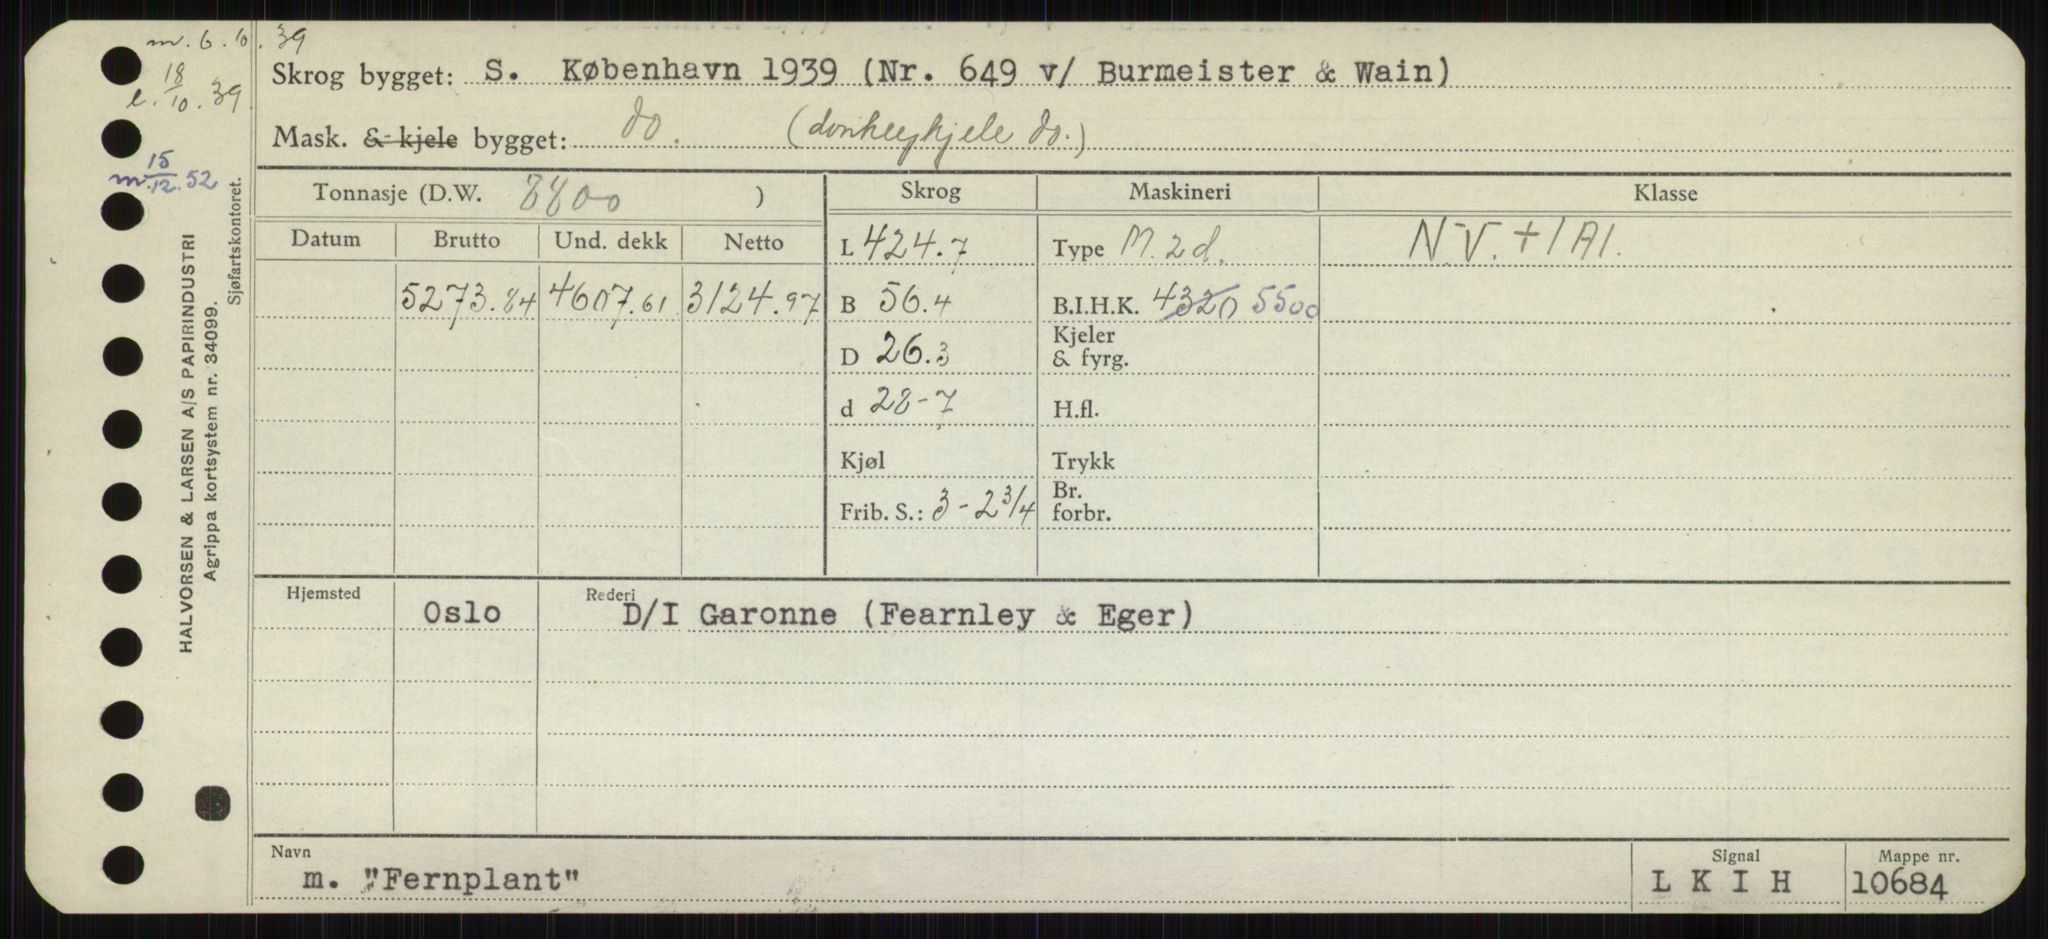 m. 6.10.39
e. 18/10.39
m. 15/12.52
Skrog bygget: S. København 1939 (Nr. 649 v/ Burmeister & Wain)
Mask. & kjele bygget: do. (donkeykjele do.)
Tonnasje (D.W. 8800 )
Skrog Maskineri Klasse
Datum Brutto Und. dekk Netto
5273.84 4607.61 3124.97
L 424.7
B 56.4
D 26.3
d 28-7
Kjøl
Frib. S.: 3-2 3/4
Type M. 2d.
B.I.H.K. 4320 5500
Kjeler
& fyrg.
H.fl.
Trykk
Br.
forbr.
N.V. + 1A1.
Hjemsted Rederi
Oslo D/I Garonne (Fearnley & Eger)
Navn
m. "Fernplant"
Signal
L K I H
Mappe nr.
10684
HALVORSEN & LARSEN A/S PAPIRINDUSTRI
Agrippa kortsystem nr. 34099.
Sjøfartskontoret.